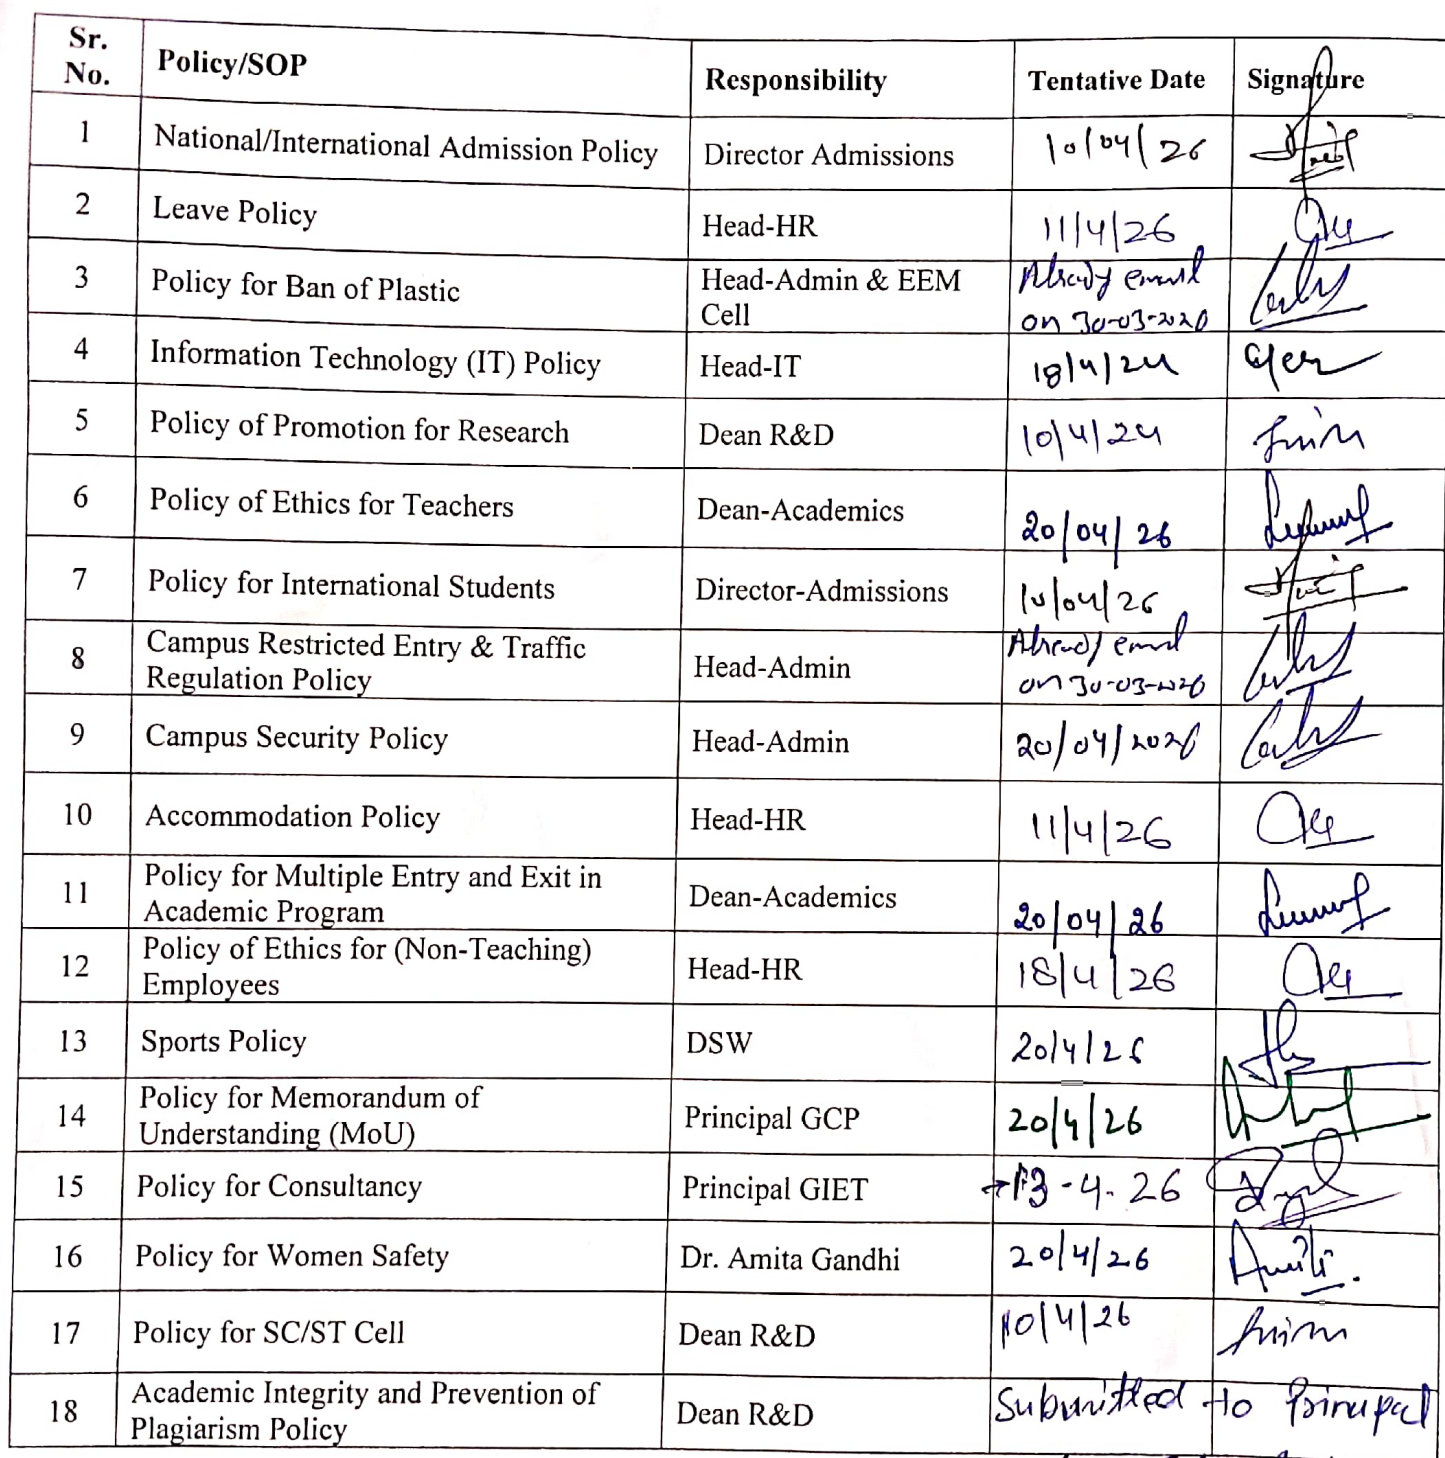 Sr. No. Policy/SOP Responsibility Tentative Date Signature
1 National/International Admission Policy Director Admissions 10/04/26
2 Leave Policy Head-HR 11/4/26
3 Policy for Ban of Plastic Head-Admin & EEM Cell Already email on 30-03-2026
4 Information Technology (IT) Policy Head-IT 18/4/24
5 Policy of Promotion for Research Dean R&D 10/4/24
6 Policy of Ethics for Teachers Dean-Academics 20/04/26
7 Policy for International Students Director-Admissions 10/04/26
8 Campus Restricted Entry & Traffic Regulation Policy Head-Admin Already email on 30-03-2026
9 Campus Security Policy Head-Admin 20/04/2026
10 Accommodation Policy Head-HR 11/4/26
11 Policy for Multiple Entry and Exit in Academic Program Dean-Academics 20/04/26
12 Policy of Ethics for (Non-Teaching) Employees Head-HR 18/4/26
13 Sports Policy DSW 20/4/26
14 Policy for Memorandum of Understanding (MoU) Principal GCP 20/4/26
15 Policy for Consultancy Principal GIET 13-4-26
16 Policy for Women Safety Dr. Amita Gandhi 20/4/26
17 Policy for SC/ST Cell Dean R&D 10/4/26
18 Academic Integrity and Prevention of Plagiarism Policy Dean R&D Submitted to Principal